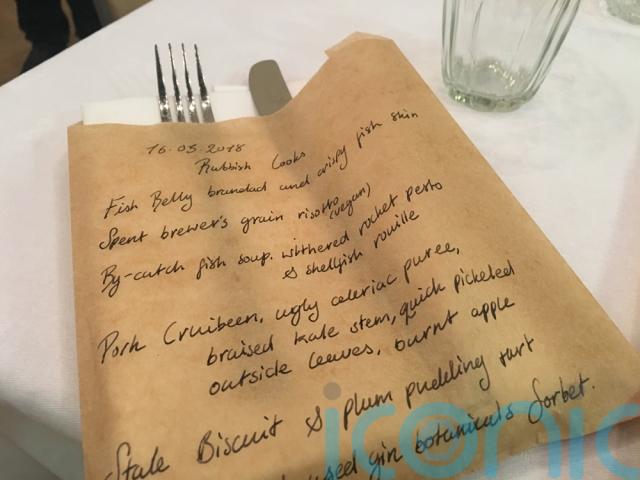 16.05.2018
Rubbish Cooks
Fish Belly brandad and crispy fish skin
Spent brewer's grain risotto (vegan)
By-catch fish soup. withered rocket pesto
& shellfish rouille
Pork Cruibeen, ugly celeriac puree,
braised kale stem, quick pickeled
outside leeves, burnt apple
Stale Biscuit & plum pudding tart
used gin botanicals Sorbet.
iconic